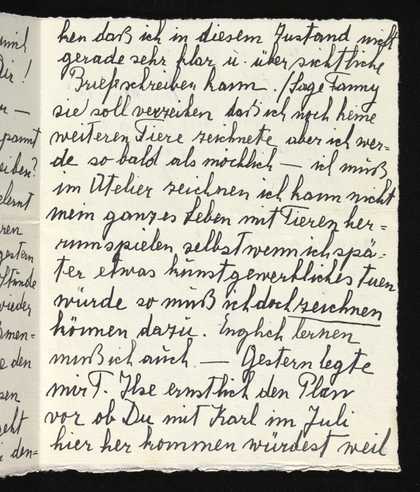 hen daß ich in diesem Zustand nicht
gerade sehr klar u. übersichtliche
Briefschreiben kann. / Sage Fanny
sie soll verzeihen daß ich noch keine
weiteren Tiere zeichnete, aber ich wer-
de so bald als möchlich — ich muß
im Atelier zeichnen ich kann nicht
mein ganzes Leben mit Tieren her-
rumspielen selbst wenn ich spä-
ter etwas kunstgewerbliches tuen
würde so muß ich doch zeichnen
können dazu. Englich lernen
muß ich auch — Gestern legte
mir T. Ilse ernstlich den Plan
vor ob Du mit Karl im Juli
hier her kommen würdest weil